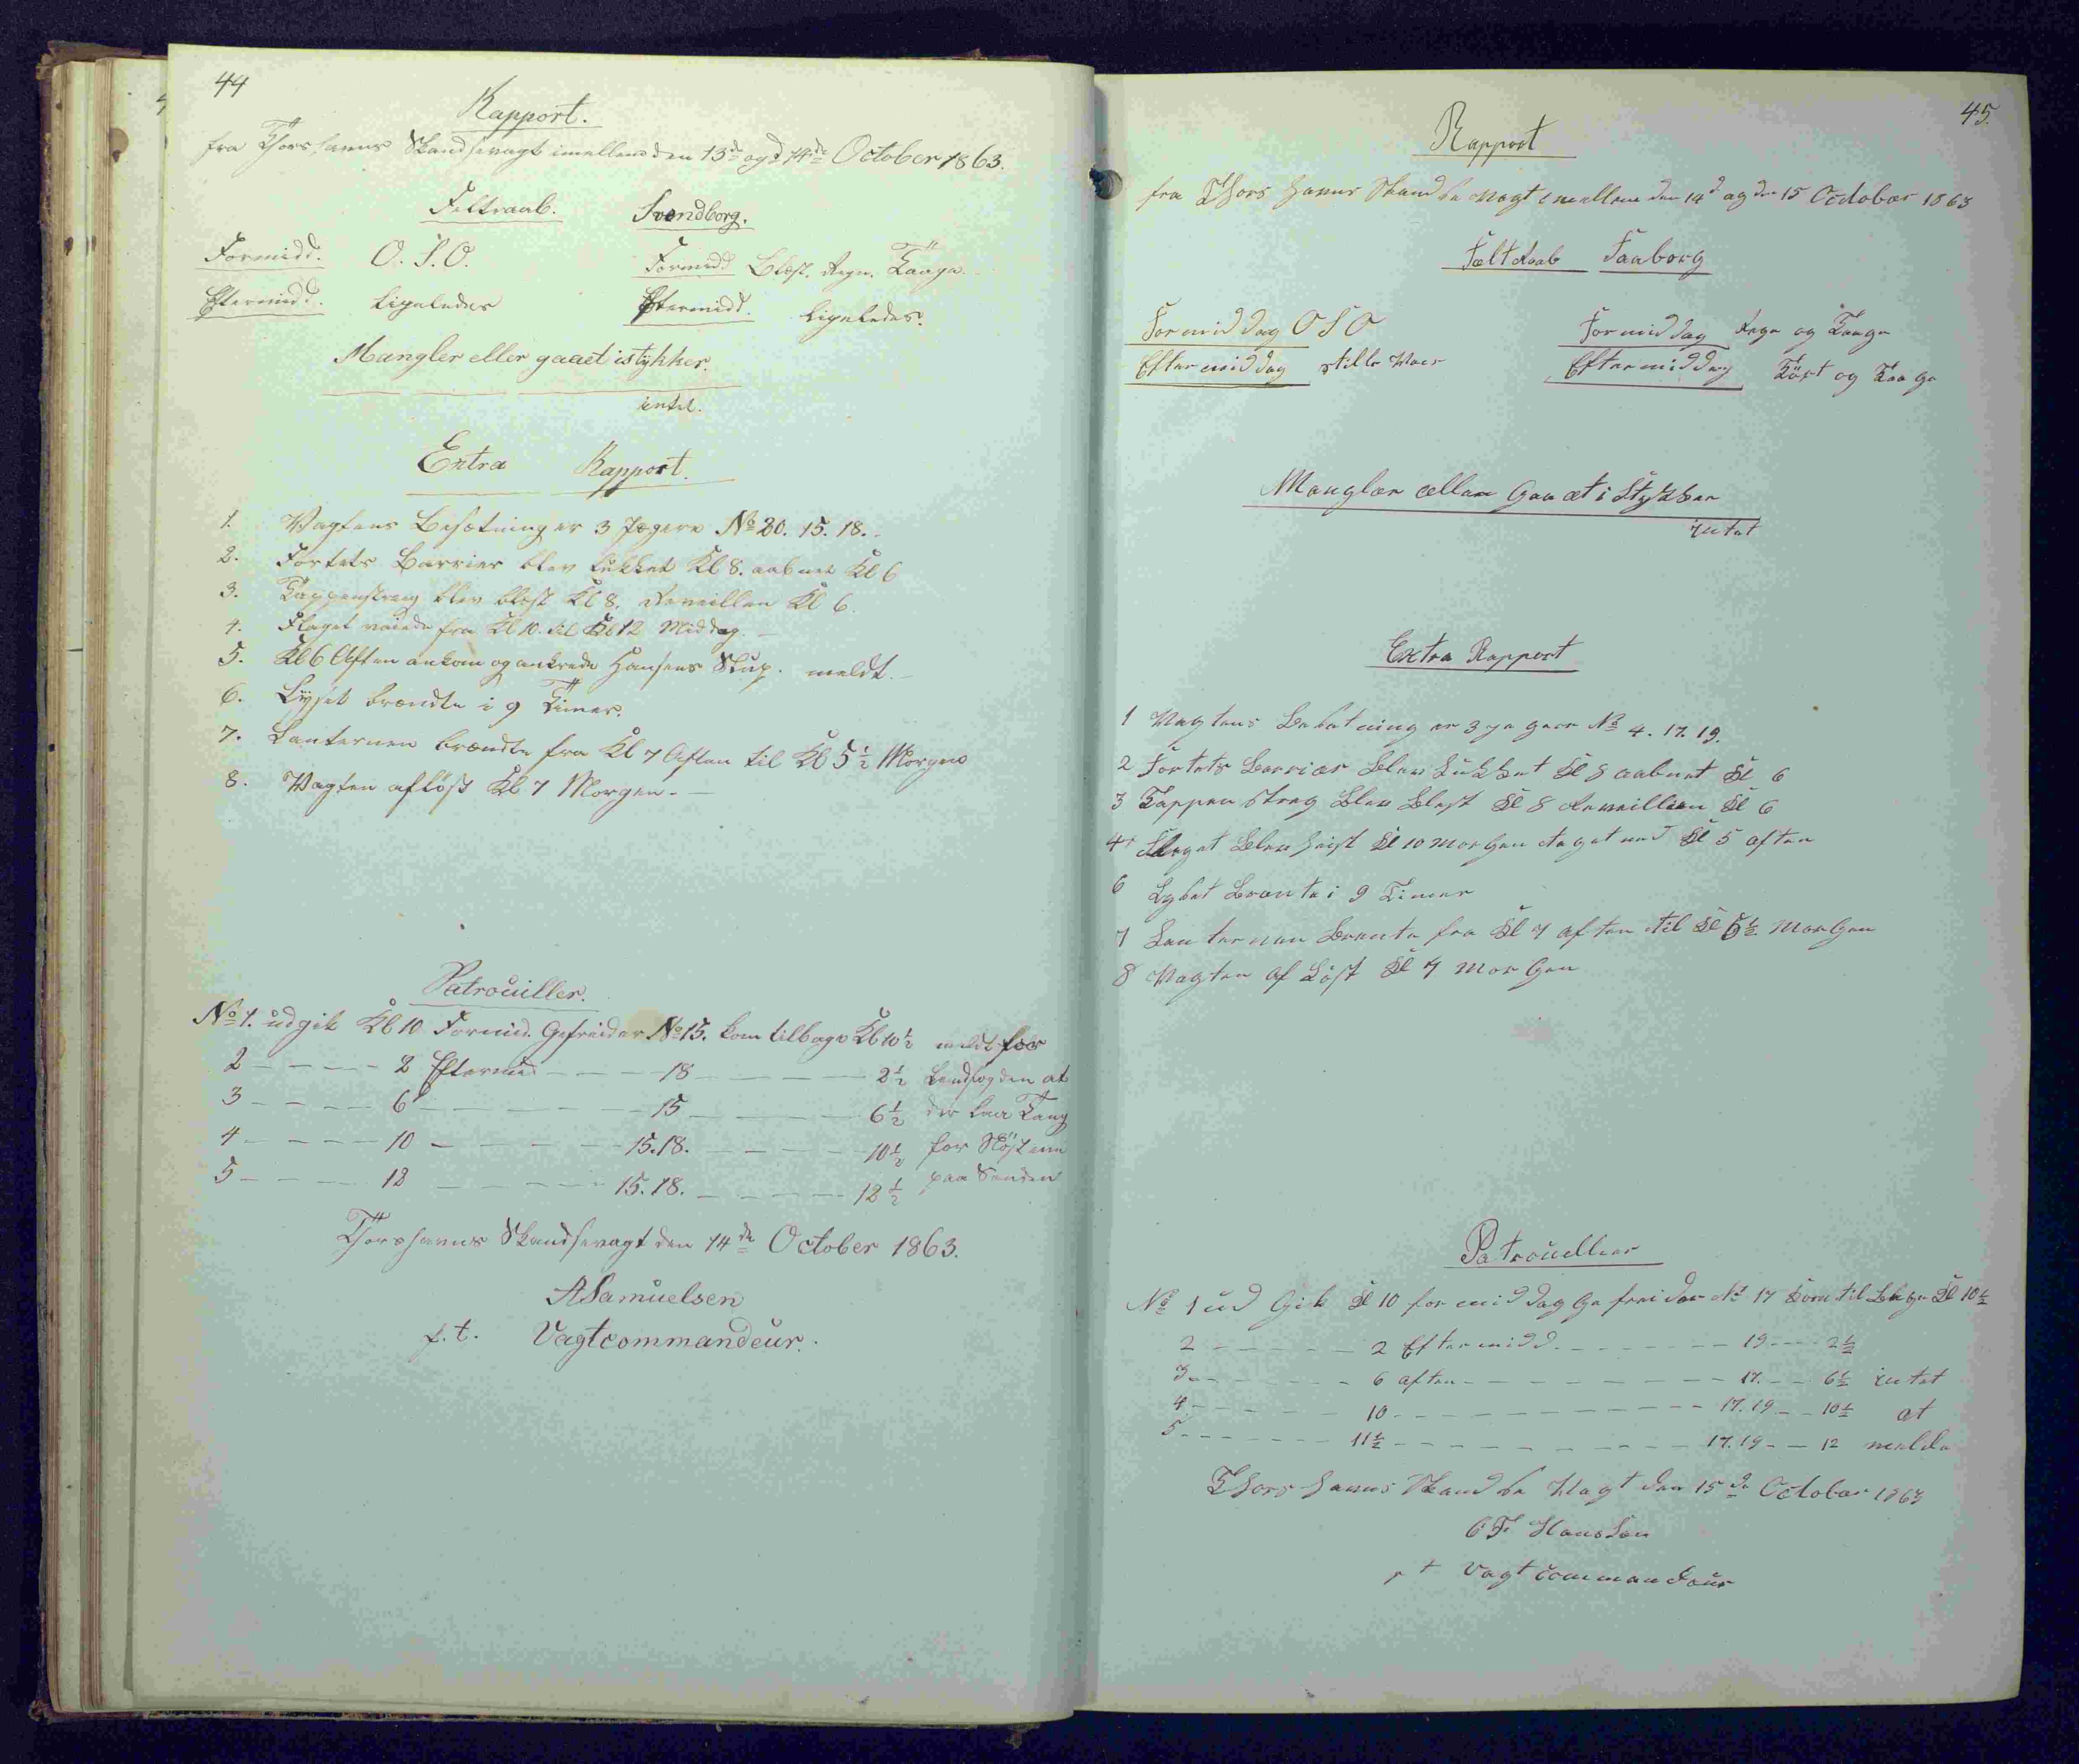 44
Rapport.
fra Thorshavns Skandsevagt imellem den 13de og 14de October 1863.
Feltraab. Svendborg.
Formidd. O.S.O. Formidd Blæst. Regn. Taage.
Eftermidd. Ligeledes Eftermidd. Ligeledes.
Mangler eller gaaet istykker.
intet.
Extra Rapport.
1. Vagtens Besætning er 3 Jægere No 20. 15. 18.
2. Fortets Barrier blev lukket Kl 8. aabnet Kl 6
3. Tappenstreg blev blæst Kl 8, Reveillen Kl 6.
4. Flaget vaiede fra Kl 10. til Kl 12 Middag.
5. Kl 6 Aften ankom og ankrede Hansens Slup. meldt.
6. Lyset brændte i 9 Timer.
7. Lanternen brændte fra Kl 7 Aften til Kl 5½ Morgen
8. Vagten afløst Kl 7 Morgen.
Patrouiller.
No 1. udgik Kl 10 Formid. Gefreider No 15. kom tilbage Kl 10½ meldt for
2 - - - - - 2 Eftermid - - - - 18 - - - - - 2½ Landfogden at
3 - - - - 6 - - - - - - 15 - - - - - 6½ der laa Tang
4 - - - - 10 - - - - - 15.18. - - - - - 10½ for
5 - - - - 12 - - - - - 15.18. - - - - - 12½ paa Sanden
Thorshavns Skandsevagt den 14de October 1863.
ASamuelsen
p.t. Vagtcommandeur.
45.
Rapport
fra Thors havns Skandse Vagt emellem den 14d og den 15 October 1863
Feltraab Faaborg
Formiddag OSO Formiddag Regn og Taage
Eftermiddag stille Veer Eftermiddag Tört og Taage
Mangler eller Gaaet i Stykker
intet
Extra Rapport
1 Vagtens Besatning er 3 jegere No 4. 17. 19.
2 Fortets Barrier Blev Lukket Kl 8 aabnet Kl 6
3 Tappenstreg Blev Blest Kl 8 Reveillien Kl 6
4 Flaget Blev heist Kl 10 Morgen taget ned Kl 5 aften
6 Lyset Brente i 9 Timer
7 Lanternen Brente fra Kl 7 aften til Kl 5½ Morgen
8 Vagten af Löst Kl 7 Morgen
Patrouellier
No 1 ud Gik Kl 10 formiddag Gefreider No 17 Kom tilbage Kl 10½
2 - - - - - 2 Eftermidd. - - - - - - 19 - - - 2½
3 - - - - - 6 aften - - - - - - - 17. - - - 6½ intet
4 - - - - - 10 - - - - - - - - 17.19 - - 10½ at
5 - - - - - 11½ - - - - - - - - 17.19 - - 12 melde
Thors havns Skandse Vagt den 15de October 1863
Hansen
pt Vagtcommandeur